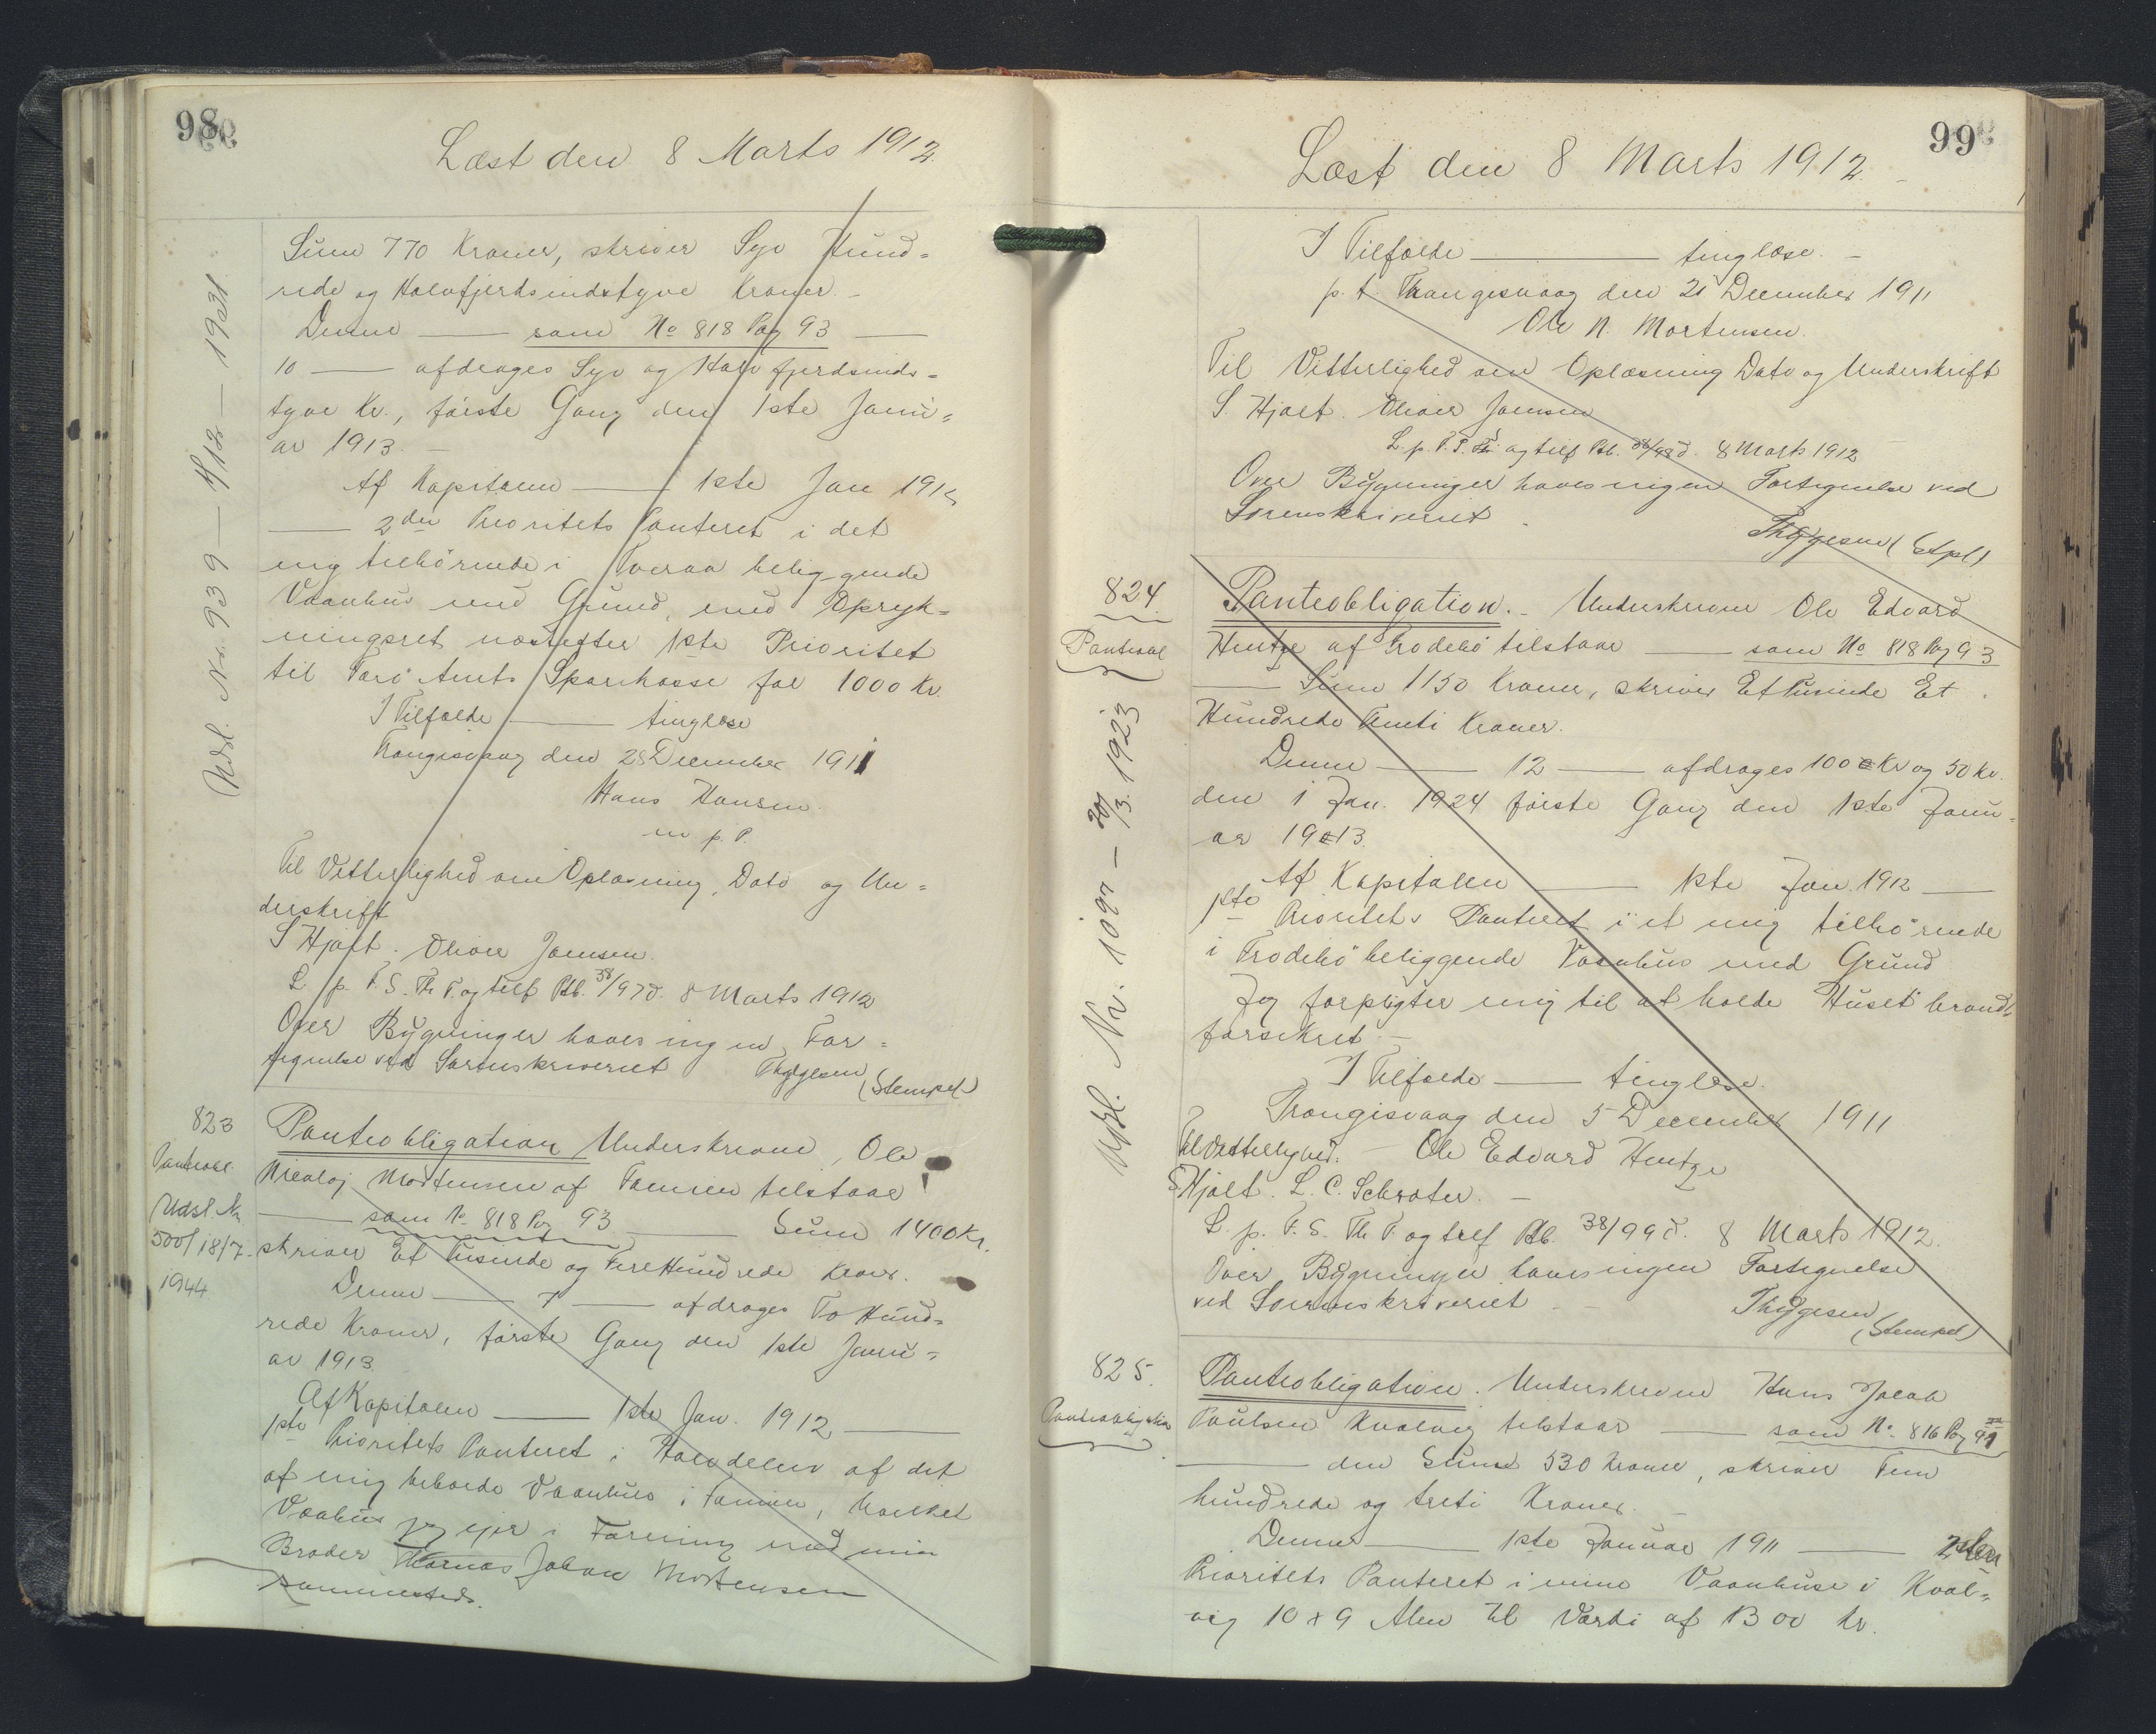 98
Læst den 8 Marts 1912
Udsl. Nr. 939 — 4/12 — 1931
Sum 770 Kroner, skriver Syv Hund-
rede og Halvfjerdsindstyve Kroner. -
Denne — som No 818 Pag 93 —
10 — afdrages Syv og Halvfjerdsinds-
tyve Kr., første Gang den 1ste Janu-
ar 1913. -
Af Kapitalen — 1ste Jan 1912
— 2den Prioritets Panteret i det
mig tilhørende i Tveraa beliggende
Vaanhus med Grund, med Opryk-
ningsret næstefter 1ste Prioritet
til Færø Amts Sparekasse for 1000 Kr.
I Tilfælde — tinglæse
Trangisvaag den 28 December 1911
Hans Hansen.
m. p. P.
Til Vitterlighed om Oplæsning, Dato og Un-
derskrift
S Hjalt. Oliver Joensen.
L. p. F. S. Th. F. og tilf Ptb. 38/97 d. 8 Marts 1912
Over Bygninger haves ingen For-
tegnelse ved Sorenskriveriet Thygesen
(Stempel)
823
Panteobl.
Udsl. Nr
500/ 18/7-
1944
Panteobligation Underskrevne, Ole
Nicolaj Mortensen af Famien tilstaar
— som No 818 Pag 93 — Sum 1400 Kr.
skriver Et Tusinde og Fire Hundrede Kroner.
Denne — 7 — afdrages To Hund-
rede Kroner, første Gang den 1ste Janu-
ar 1913
Af Kapitalen — 1ste Jan. 1912 —
1ste Prioritets Panteret i Halvdelen af det
af mig beboede Vaanhus i Famien, hvilket
Vaahus jeg ejer i Forening med min
Broder Thomas Johan Mortensen
sammesteds.
99
Læst den 8 Marts 1912. -
I Tilfælde — tinglæse. -
p. t. Trangisvaag den 21 December 1911
Ole N. Mortensen.
Til Vitterlighed om Oplæsning Dato og Underskrift
S. Hjalt. Oliver Joensen
L. p. F. S. Th og tilf Ptb. 38/98 d. 8 Marts 1912
Over Bygninger haves ingen Fortegnelse ved
Sorenskriveriet.
Thygesen (Stpl)
824.
Panteobl
Udsl. Nr. 1097 — 20/3. 1923
Panteobligation. - Underskrevne Ole Edvard
Hentze af Frodebø tilstaar — som No 818 Pag 93
— Sum 1150 Kroner, skriver Et Tusinde Et
Hundrede Femti Kroner.
Denne — 12 — afdrages 100 Kr og 50 Kr.
den 1 Jan. 1924 første Gang den 1ste Janu-
ar 1913.
Af Kapitalen — 1ste Jan. 1912 —
1ste Prioritets Panteret i et mig tilhørende
i Frodebø beliggende Vaanhus med Grund
Jeg forpligter mig til at holde Huset brand-
forsikret. -
I Tilfælde — tinglæse.
Trangisvaag den 5 December 1911
Til Vitterlighed. - Ole Edvard Hentze
S Hjalt. L. C. Schrøter. -
L. p. F. S. Th F. og tilf Ptb. 38/99 d. 8 Marts 1912.
Over Bygninger haves ingen Fortegnelse
ved Sorenskriveriet - Thygesen
(Stempel)
825.
Panteobligation
Panteobligation. Underskrevne Hans Jacob
Poulsen Kvalvig tilstaar — som No 816 Pag 91
— den Sum 530 Kroner, skriver Fem
hundrede og treti Kroner. -
Denne — 1ste Januar 1911 — 2den
Prioritets Panteret i mine Vaanhuse i Kval-
vig 10 x 9 Alen til Værdi af 1300 Kr.